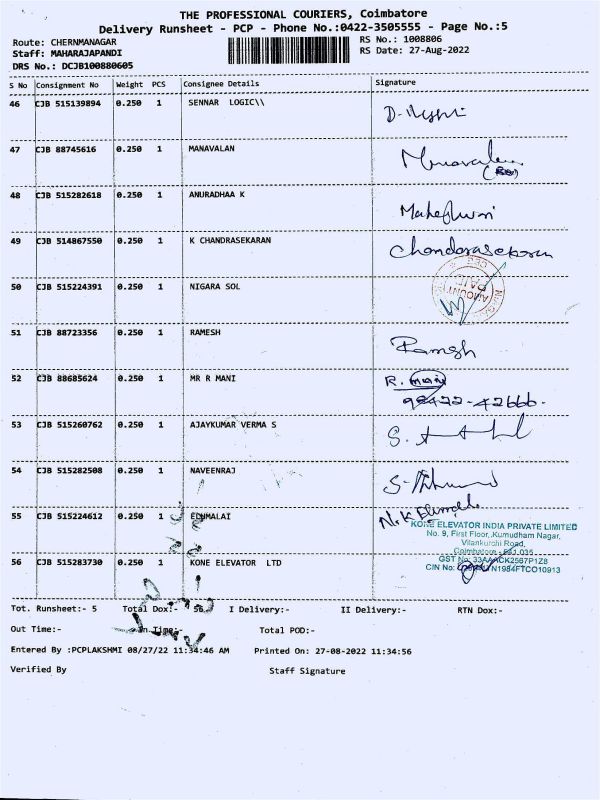 THE PROFESSIONAL COURIERS, Coimbatore
Delivery Runsheet - PCP - Phone No.:0422-3505555 - Page No.:5
Route: CHERNMANAGAR RS No.: 1008806
Staff: MAHARAJAPANDI RS Date: 27-Aug-2022
DRS No.: DCJB100880605
S No Consignment No Weight PCS Consignee Details Signature
46 CJB 515139894 0.250 1 SENNAR LOGIC\\
47 CJB 88745616 0.250 1 MANAVALAN
48 CJB 515282618 0.250 1 ANURADHAA K Maheshwari
49 CJB 514867550 0.250 1 K CHANDRASEKARAN Chandarasekaran
50 CJB 515224391 0.250 1 NIGARA SOL AMOUNT PAID
51 CJB 88723356 0.250 1 RAMESH Ramesh
52 CJB 88685624 0.250 1 MR R MANI R. mani
98422-42666.
53 CJB 515260762 0.250 1 AJAYKUMAR VERMA S
54 CJB 515282508 0.250 1 NAVEENRAJ
55 CJB 515224612 0.250 1 EDUMALAI N.K
KONE ELEVATOR INDIA PRIVATE LIMITED
No. 9, First Floor, Kumudham Nagar,
Vilankurichi Road,
Coimbatore - 641 035
GST No: 33AAACK2567P1Z8
56 CJB 515283730 0.250 1 KONE ELEVATOR LTD CIN No:
Tot. Runsheet:- 5 Total Dox:- 56 I Delivery:- II Delivery:- RTN Dox:-
Out Time:- In Time:- Total POD:-
Entered By :PCPLAKSHMI 08/27/22 11:34:46 AM Printed On: 27-08-2022 11:34:56
Verified By Staff Signature